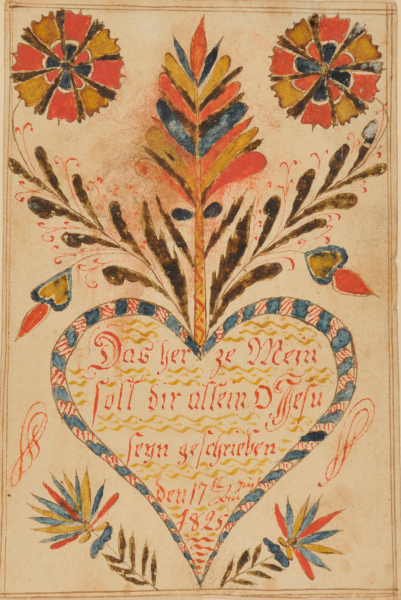 Das her ze Mein
soll dir allein O Jesu
seyn geschrieben
den 17
1825